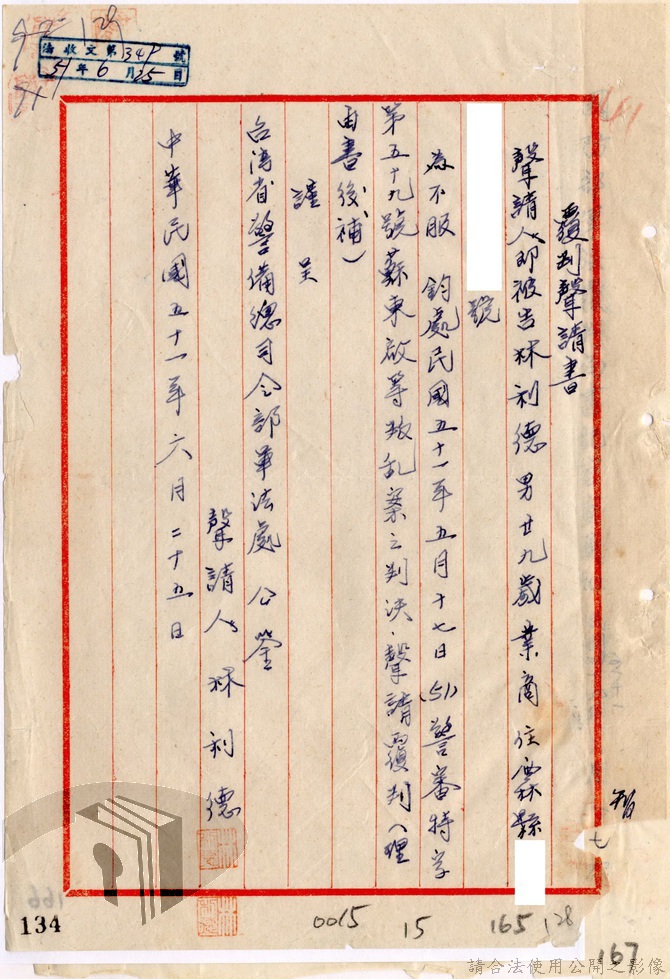 覆判聲請書
聲請人即被告林利德 男 廿九歲 業商 住雲林縣
號
為不服 鈞處民國五十一年五月十七日(51)警審特字
第五十九號蘇東啟等叛乱案之判決，聲請覆判（理
由書後補）
謹 呈
台湾省警備總司令部軍法處 公鑒
聲請人 林利德
中華民國五十一年六月二十五日
收文第 號
51年6月25日
智
七
134
0015
15
165
128
167
166
請合法使用公開之影像